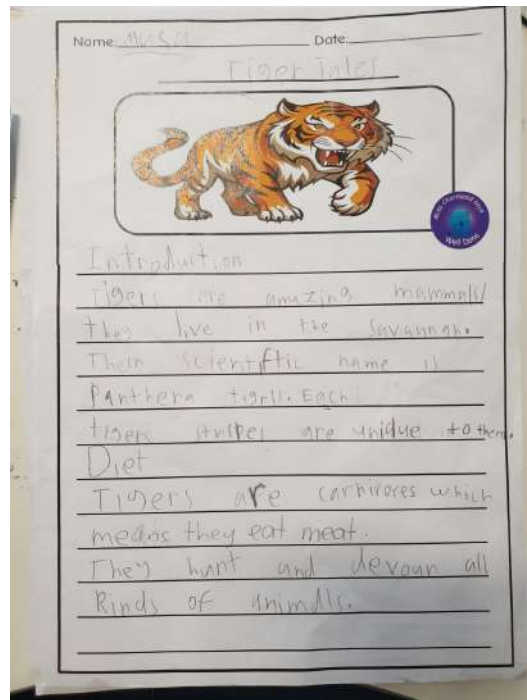 Name: Musa Date:
Tiger Tales
Well Done
Introduction
Tigers are amazing mammals/
they live in the Savannah.
Their scientiftic name is
Panthera tigris. Each
tigers stripes are unique to them.
Diet
Tigers are carnivores which
means they eat meat.
They hunt and devour all
kinds of animals.